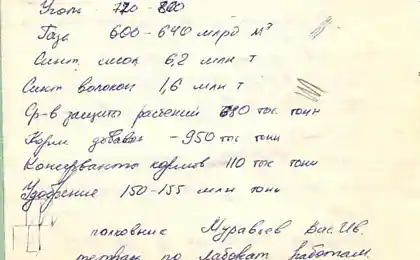 Уголь 720 - 800
Газа 600 - 640 млрд м³
Синт. смол 6,2 млн т
Синт волокон 1,6 млн т
Ср-в защиты растений 680 тыс тонн
Корм добавок - 950 тыс тонн
Консерванты кормов 110 тыс тонн
Удобрение 150-155 млн тонн
полковник Муравьев Вас. Ив.
тетради по лабокат работам.